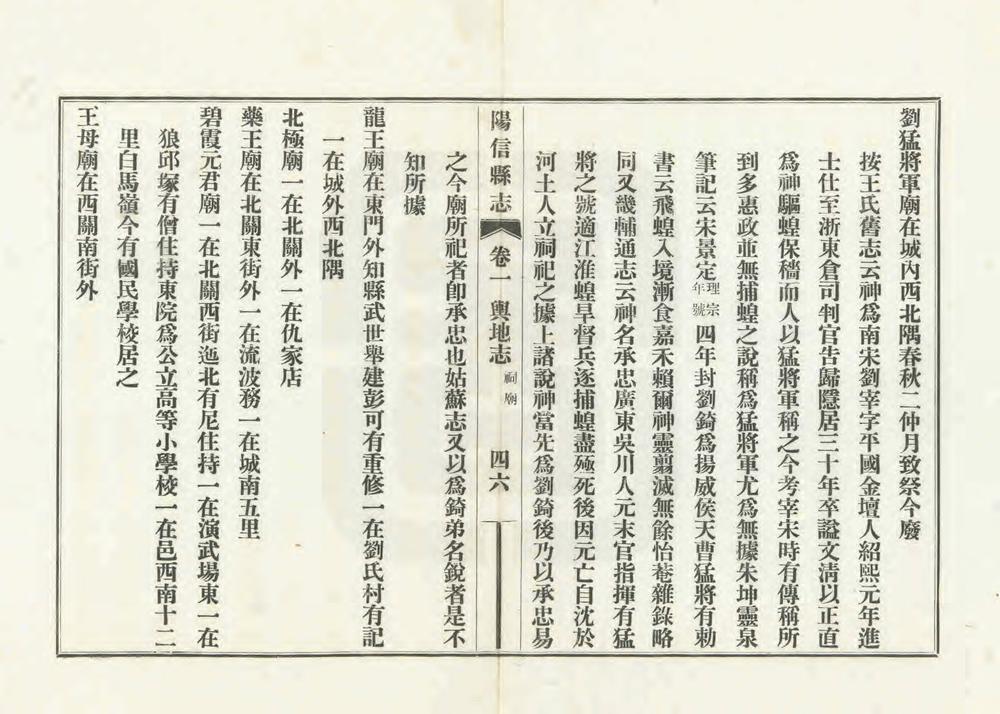 劉猛將軍廟在城內西北隅春秋二仲月致祭今廢
按王氏舊志云神爲南宋劉宰字平國金壇人紹熙元年進
士仕至浙東倉司判官告歸隱居三十年卒諡文淸以正直
爲神驅蝗保穡而人以猛將軍稱之今考宰宋時有傳稱所
到多惠政並無捕蝗之說稱爲猛將軍尤爲無據朱坤靈泉
筆記云宋景定理宗年號四年封劉錡爲揚威侯天曹猛將有勅
書云飛蝗入境漸食嘉禾賴爾神靈翦滅無餘怡菴雜錄略
同又畿輔通志云神名承忠廣東吳川人元末官指揮有猛
將之號適江淮蝗旱督兵逐捕蝗盡殛死後因元亡自沈於
河土人立祠祀之據上諸說神當先爲劉錡後乃以承忠易
陽信縣志 卷一 輿地志 祠廟 四六
之今廟所祀者卽承忠也姑蘇志又以爲錡弟名銳者是不
知所據
龍王廟在東門外知縣武世舉建彭可有重修一在劉氏村有記
一在城外西北隅
北極廟一在北關外一在仇家店
藥王廟在北關東街外一在流波務一在城南五里
碧霞元君廟一在北關西街迤北有尼住持一在演武場東一在
狼邱塚有僧住持東院爲公立高等小學校一在邑西南十二
里白馬嶺今有國民學校居之
王母廟在西關南街外